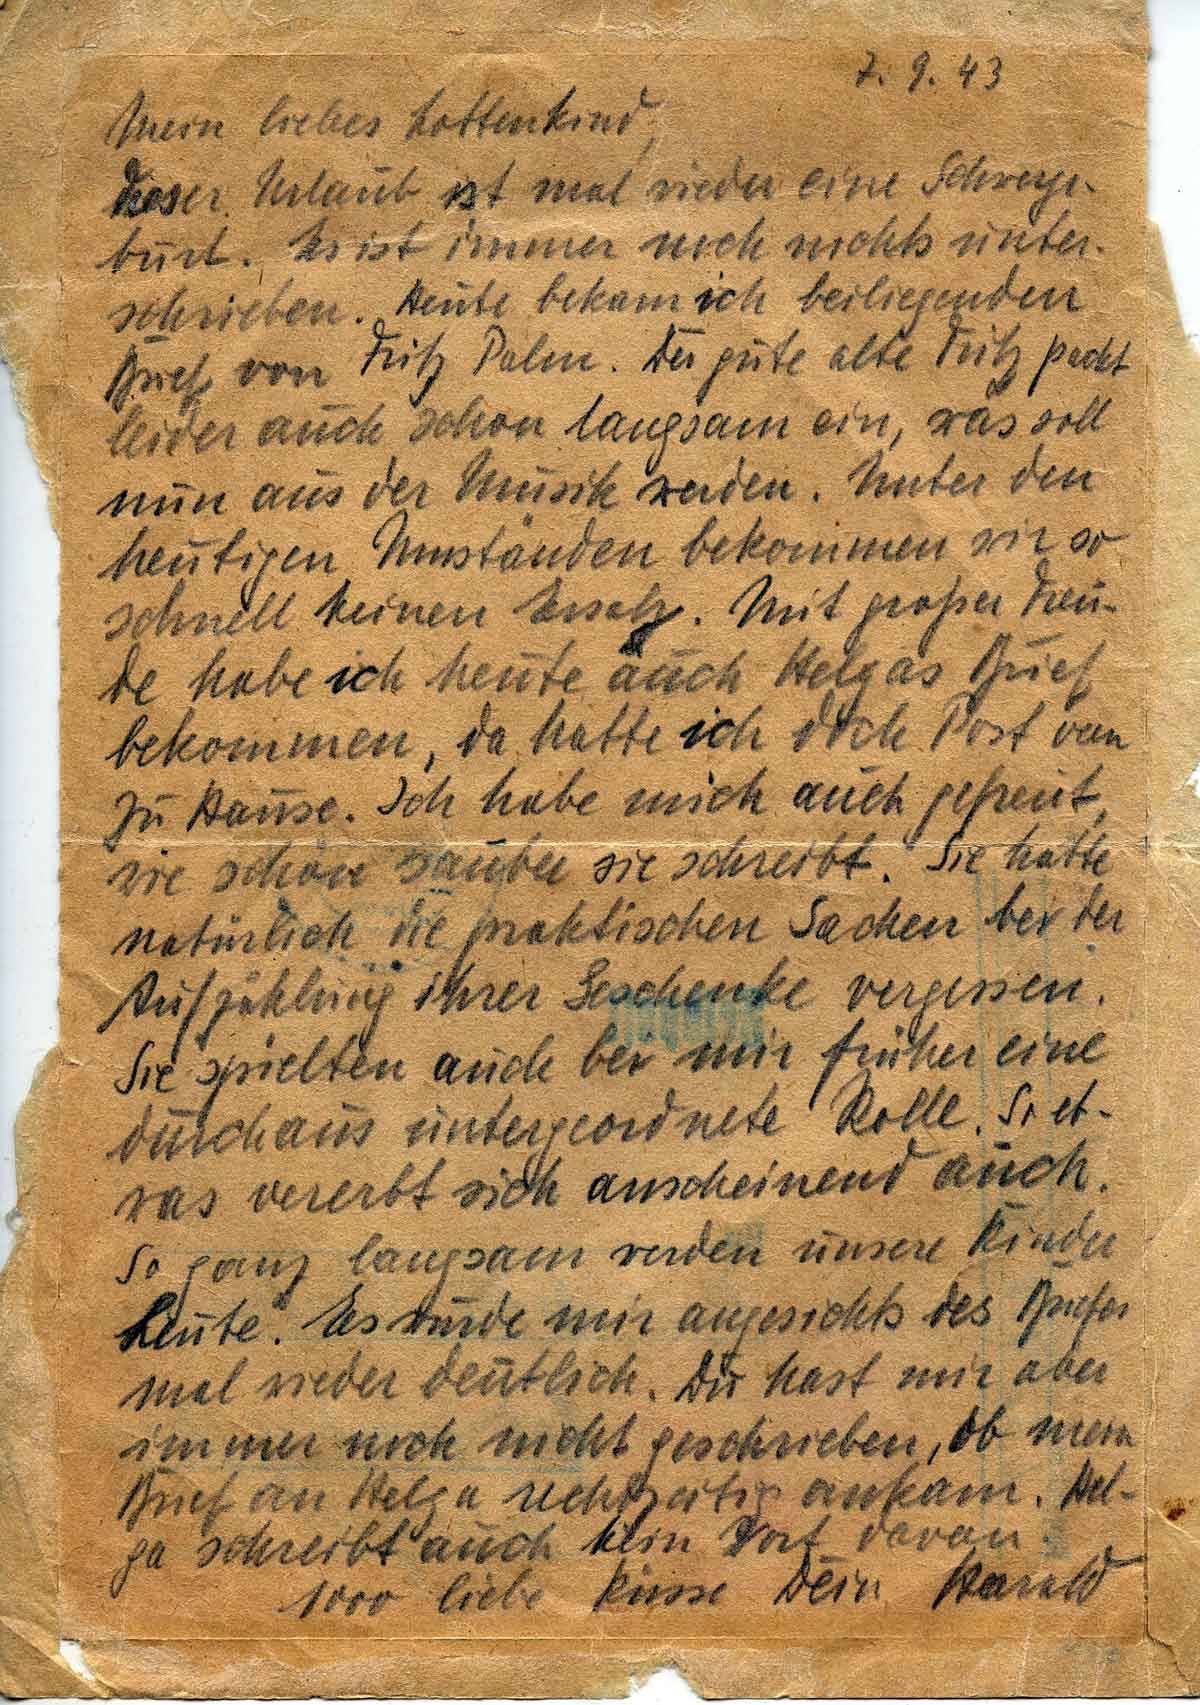 7. 9. 43
Mein liebes Lottenkind,
dieser Urlaub ist mal wieder eine Schwerge-
burt. Es ist immer noch nichts unter-
schrieben. Heute bekam ich beiliegenden
Brief von Fritz Palm. Der gute alte Fritz packt
leider auch schon langsam ein, was soll
nun aus der Musik werden. Unter den
heutigen Umständen bekommen wir so
schnell keinen Ersatz. Mit großer Freu-
de habe ich heute auch Helgas Brief
bekommen, da hatte ich doch Post von
zu Hause. Ich habe mich auch gefreut,
wie schön sauber sie schreibt. Sie hatte
natürlich die praktischen Sachen bei der
Aufzählung ihrer Geschenke vergessen.
Sie spielten auch bei mir früher eine
durchaus untergeordnete Rolle. So et-
was vererbt sich anscheinend auch.
So ganz langsam werden unsere Kinder
Leute. Es wurde mir angesichts des Briefes
mal wieder deutlich. Du hast mir aber
immer noch nicht geschrieben, ob mein
Brief an Helga rechtzeitig ankam. Hel-
ga schreibt auch kein Wort davon.
1000 liebe Küsse Dein Harald